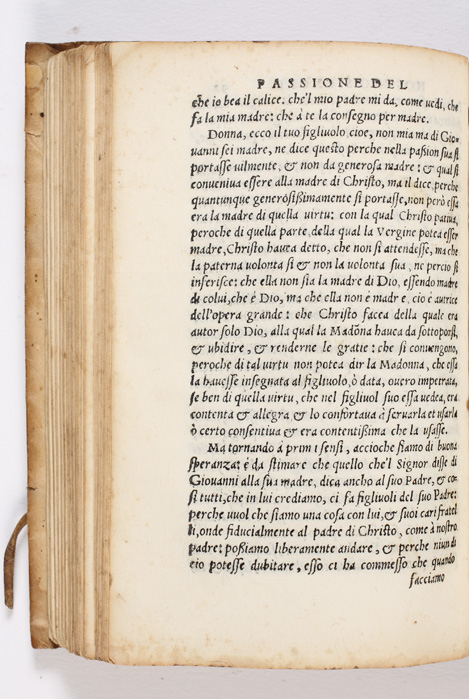 PASSIONE DEL
che io bea il calice. che'l mio padre mi da, come uedi, che
fa la mia madre: che à te la consegno per madre.
Donna, ecco il tuo figliuolo, cioe, non mia ma di Gio-
uanni sei madre, ne dice questo perche nella paßion sua si
portasse uilmente, & non da generosa madre: & qual si
conueniua essere alla madre di Christo, ma il dice, perche
quantunque generosißimamente si portasse, non però essa
era la madre di quella uirtu: con la qual Christo patiua,
peroche di quella parte, della qual la Vergine potea esser
madre, Christo hauea detto, che non si attendesse, ma che
la paterna uolonta si & non la uolonta sua, ne percio si
inferisce: che ella non sia la madre di Dio, essendo madre
di colui, che é Dio, ma che ella non é madre, cio é autrice
dell'opera grande: che Christo facea della quale era
autor solo Dio, alla qual la Madõna hauea da sottoporsi,
& ubidire, & renderne le gratie: che si conuengono,
peroche di tal uirtu non potea dir la Madonna, che essa
la hauesse insegnata al figliuolo, ò data, ouero impetrata,
se ben di quella uirtu, che nel figliuol suo essa uedea, era
contenta & allegra & lo confortaua à seruarla et usarla
ò certo consentiua & era contentißima che la usasse.
Ma tornando à primi sensi, accioche siamo di buona
speranza: é da stimare che quello che'l Signor disse di
Giouanni alla sua madre, dica ancho al suo Padre, & co-
si tutti, che in lui crediamo, ci fa figliuoli del suo Padre:
perche uuol che siamo una cosa con lui, & suoi cari fratel
li, onde fiducialmente al padre di Christo, come à nostro
padre: poßiamo liberamente andare, & perche niun di
cio potesse dubitare, esso ci ha commesso che quando
facciamo